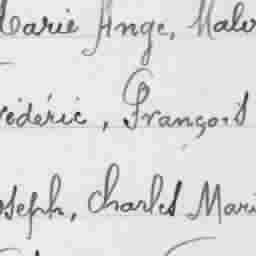 Marie Ange, Malv
rédéric, François
oseph, Charles Mari